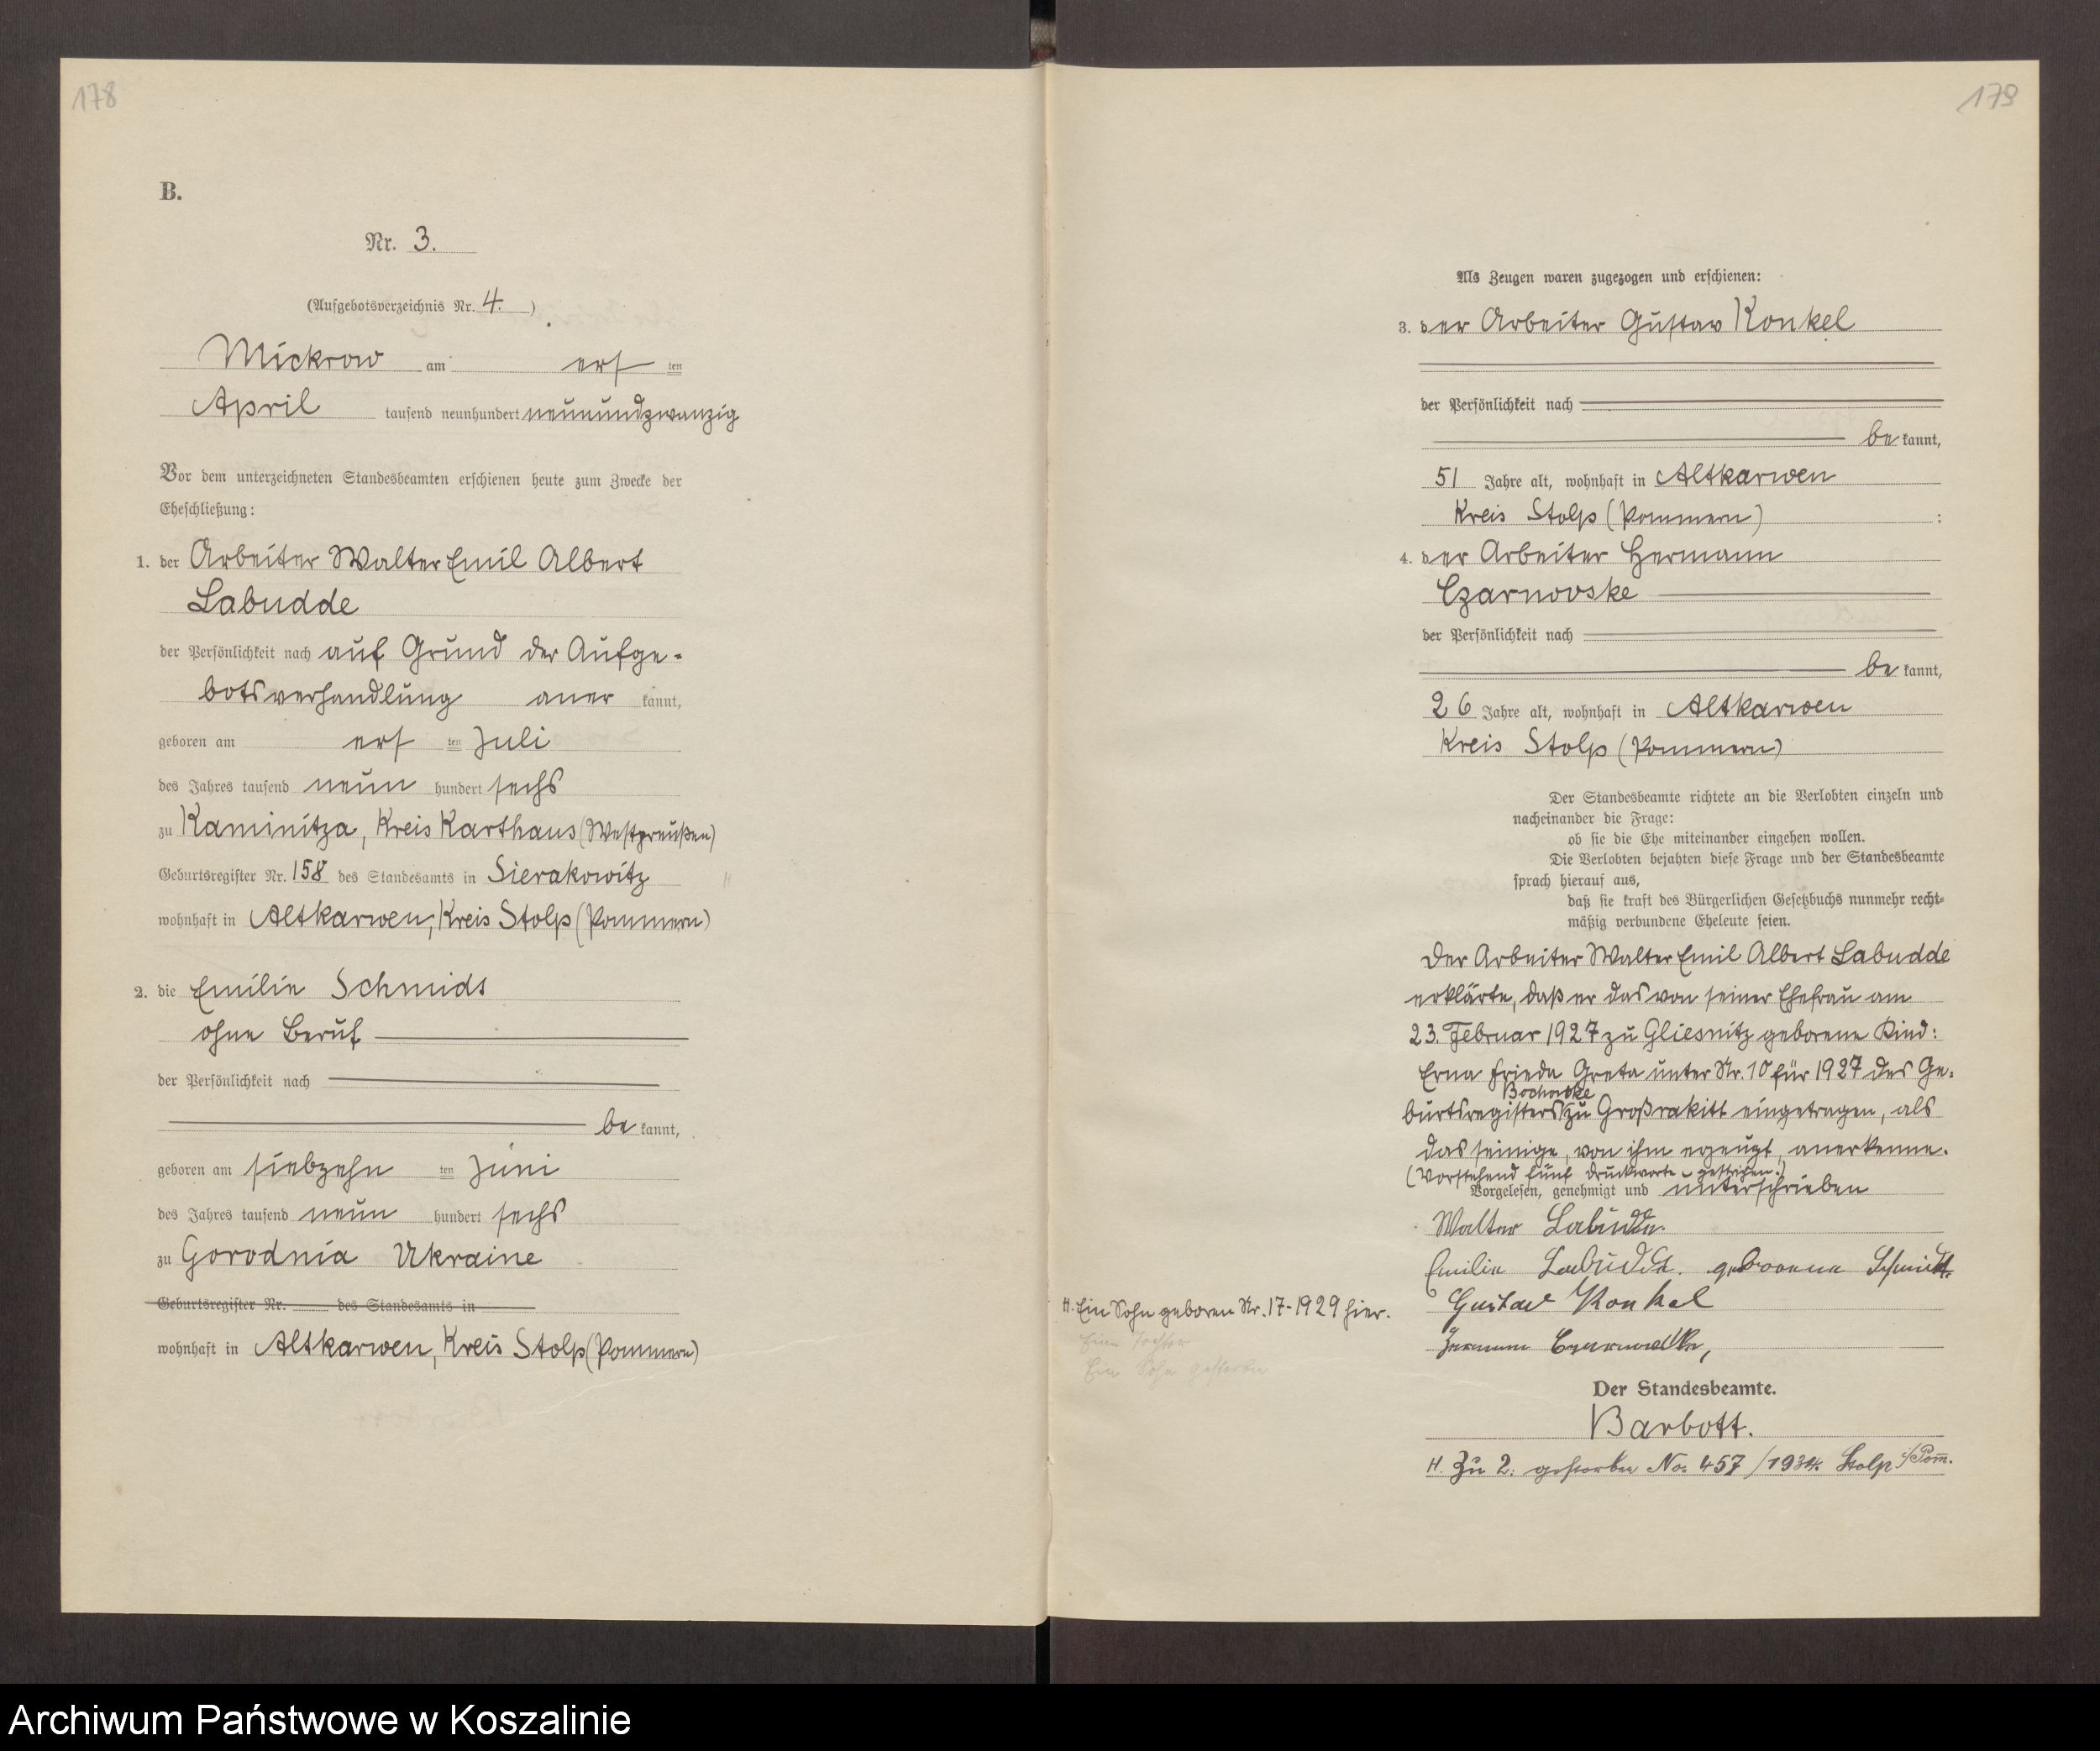 178
B.
Nr. 3.
(Aufgebotsverzeichnis Nr. 4. )
Mickrow am ers ten
April tausend neunhundert neunundzwanzig
Vor dem unterzeichneten Standesbeamten erschienen heute zum Zwecke der
Eheschließung:
1. der Arbeiter Walter Emil Albert
Labudde
der Persönlichkeit nach auf Grund der Aufge-
botsverhandlung aner kannt,
geboren am ers ten Juli
des Jahres tausend neun hundert sechs
zu Kaminitza, Kreis Karthaus (Westpreußen)
Geburtsregister Nr. 158 des Standesamts in Sierakowitz
wohnhaft in Altkarwen, Kreis Stolp (Pommern)
2. die Emilie Schmidt
ohne Beruf
der Persönlichkeit nach
be kannt,
geboren am siebzehn ten Juni
des Jahres tausend neun hundert sechs
zu Gorodnia Ukraine
Geburtsregister Nr. des Standesamts in
wohnhaft in Altkarwen, Kreis Stolp (Pommern)
179
Als Zeugen waren zugezogen und erschienen:
3. der Arbeiter Gustav Konkel
der Persönlichkeit nach
be kannt,
51 Jahre alt, wohnhaft in Altkarwen
Kreis Stolp (Pommern) ;
4. der Arbeiter Hermann
Czarnowske
der Persönlichkeit nach
be kannt,
26 Jahre alt, wohnhaft in Altkarwen
Kreis Stolp (Pommern)
Der Standesbeamte richtete an die Verlobten einzeln und
nacheinander die Frage:
ob sie die Ehe miteinander eingehen wollen.
Die Verlobten bejahten diese Frage und der Standesbeamte
sprach hierauf aus,
daß sie kraft des Bürgerlichen Gesetzbuchs nunmehr recht-
mäßig verbundene Eheleute seien.
Der Arbeiter Walter Emil Albert Labudde
erklärte, daß er das von seiner Ehefrau am
23. Februar 1927 zu Gliesnitz geborene Kind:
Erna Frieda Greta unter Nr. 10 für 1927 des Ge-
burtsregisters zu Großrakitt eingetragen, als
das seinige, von ihm erzeugt, anerkenne.
(Vorstehend fünf Druckworte gestrichen.)
Vorgelesen, genehmigt und unterschrieben
Walter Labudde.
Emilie Labudde. geborene Schmidt.
Gustav Konkel
Hermann Czarnowske,
Der Standesbeamte.
Barbott.
H. Zu 2. gestorben No. 457/1934. Stolp i/Pom.
H. Ein Sohn geboren Nr. 17-1929 hier.
Eine Tochter
Ein Sohn gestorben
Archiwum Państwowe w Koszalinie